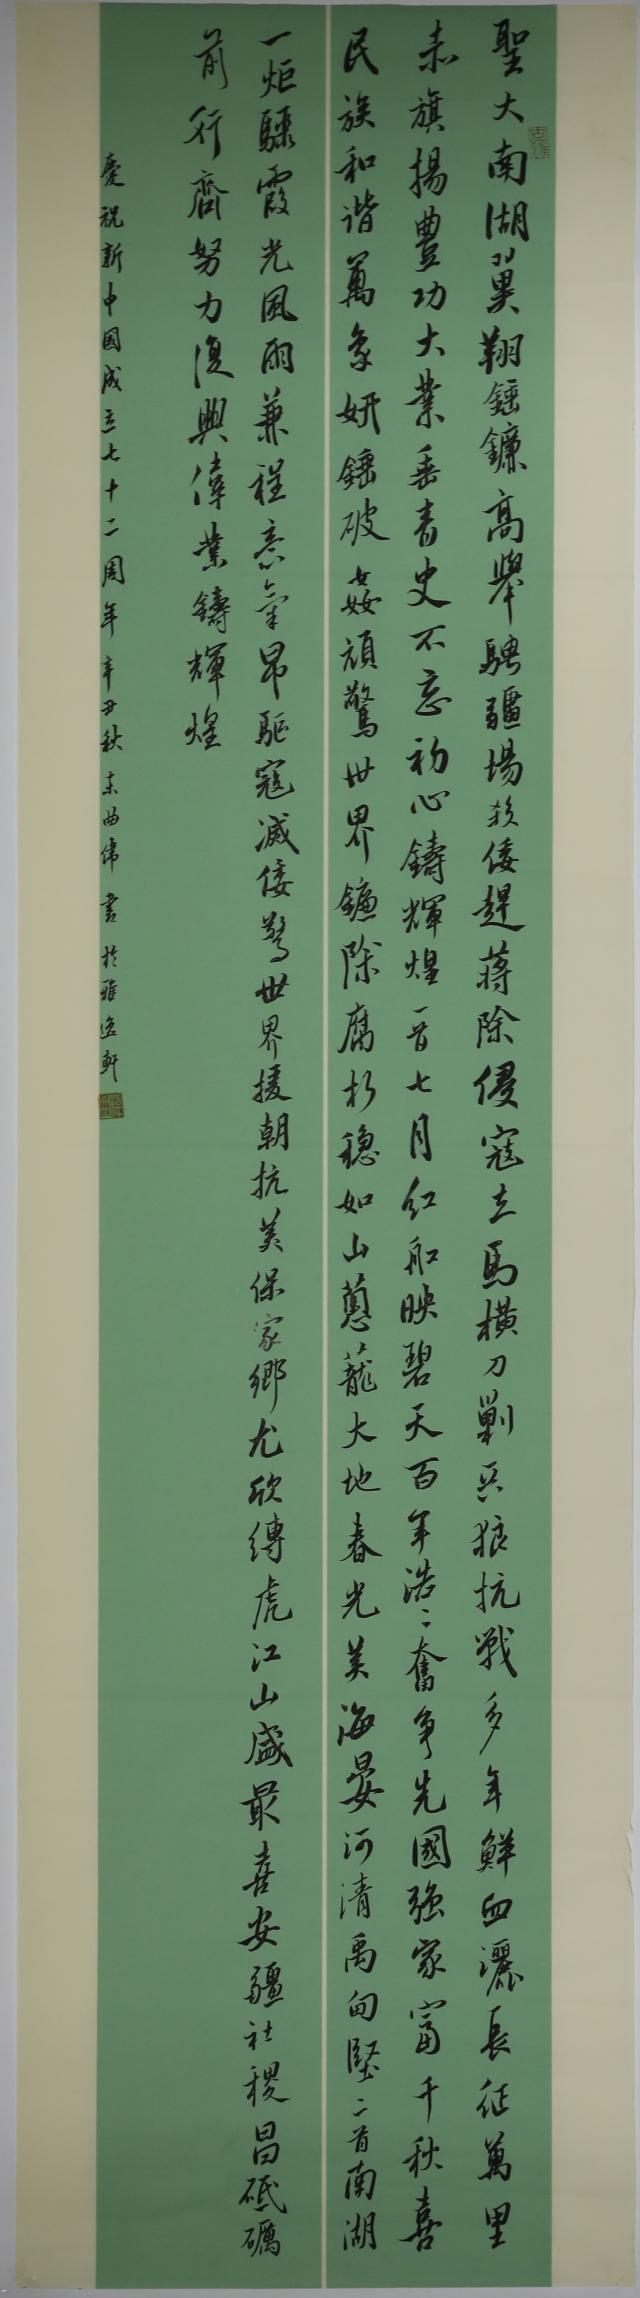 聖大南湖翼翔錘鐮高舉騁疆場殺倭趕蔣除侵寇立馬橫刀剿兇狼抗戰多年鮮血灑長征萬里
赤旗揚豐功大業垂青史不忘初心鑄輝煌一首七月紅船映碧天百年浩〻奮爭先國強家富千秋喜
民族和谐萬象妍錘破姦頑驚世界鐮除腐朽穩如山蔥蘢大地春光美海晏河清禹甸堅二首南湖
一炬騵霞光風雨兼程意氣昂驅寇滅倭驚世界援朝抗美保家鄉尤欣縛虎江山盛最喜安疆社稷昌砥礪
前行齊努力復興偉業鑄輝煌
慶祝新中國成立七十二周年辛丑秋末曲偉書於雅逸軒